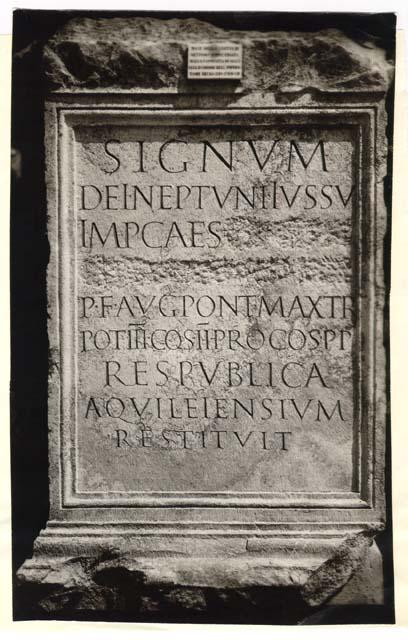 SIGNVM
DEINEPTVNIIVSSV
IMPCAES
P·FAVGPONTMAXTR
POTIIIICOSIIIPROCOSPP
RESPVBLICA
AQVILEIENSIVM
RESTITVIT